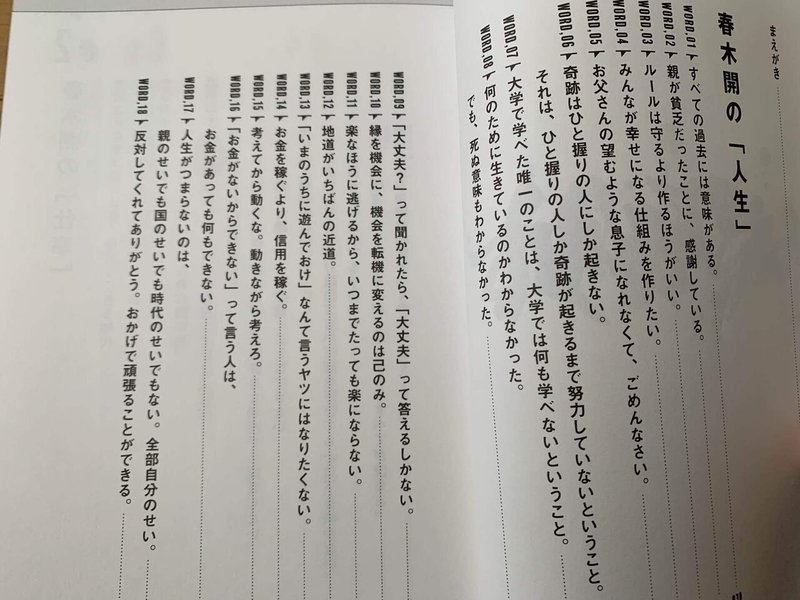 まえがき
春木開の「人生」
WORD.01 すべての過去には意味がある。
WORD.02 親が貧乏だったことに、感謝している。
WORD.03 ルールは守るより作るほうがいい。
WORD.04 みんなが幸せになる仕組みを作りたい。
WORD.05 お父さんの望むような息子になれなくて、ごめんなさい。
WORD.06 奇跡はひと握りの人にしか起きない。
それは、ひと握りの人しか奇跡が起きるまで努力していないということ。
WORD.07 大学で学べた唯一のことは、大学では何も学べないということ。
WORD.08 何のために生きているのかわからなかった。
でも、死ぬ意味もわからなかった。
WORD.09 「大丈夫？」って聞かれたら、「大丈夫」って答えるしかない。
WORD.10 縁を機会に、機会を転機に変えるのは己のみ。
WORD.11 楽なほうに逃げるから、いつまでたっても楽にならない。
WORD.12 地道がいちばんの近道。
WORD.13 「いまのうちに遊んでおけ」なんて言うヤツにはなりたくない。
WORD.14 お金を稼ぐより、信用を稼ぐ。
WORD.15 考えてから動くな。動きながら考えろ。
WORD.16 「お金がないからできない」って言う人は、
お金があっても何もできない。
WORD.17 人生がつまらないのは、
親のせいでも国のせいでも時代のせいでもない。全部自分のせい。
WORD.18 反対してくれてありがとう。おかげで頑張ることができる。